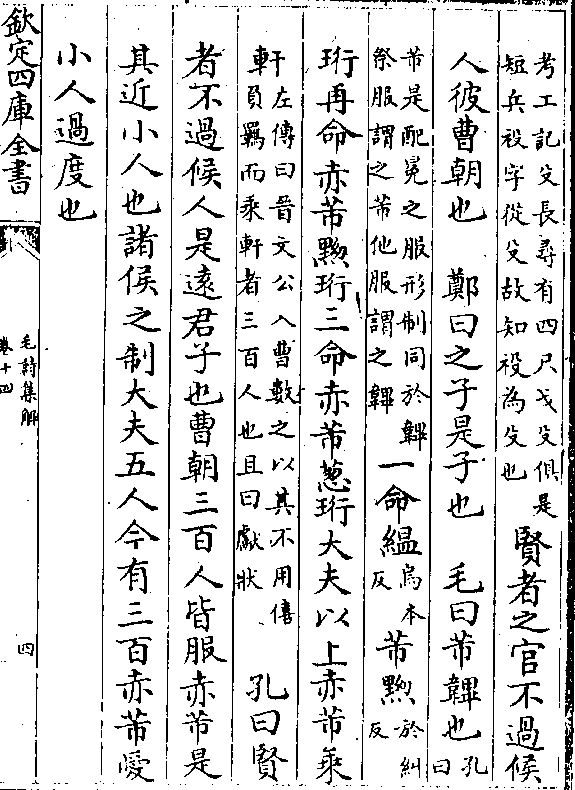 考工記殳長尋有四尺戈殳俱是
短兵祋字從殳故知祋為殳也
賢者之官不過候
人彼曹朝也 鄭曰之子是子也 毛曰芾韠也
孔曰
芾是配冕之服形制同於韠
祭服謂之芾他服謂之韠
一命緼
烏本
反
芾黝
於糾
反
珩再命赤芾黝珩三命赤芾葱珩大夫以上赤芾乘
軒
左傳曰晉文公入曹數之以其不用僖
負羈而乘軒者三百人也且曰獻狀
孔曰賢
者不過候人是遠君子也曹朝三百人皆服赤芾是
其近小人也諸侯之制大夫五人今有三百赤芾愛
小人過度也
欽定四庫全書
毛詩集解
卷十四
四